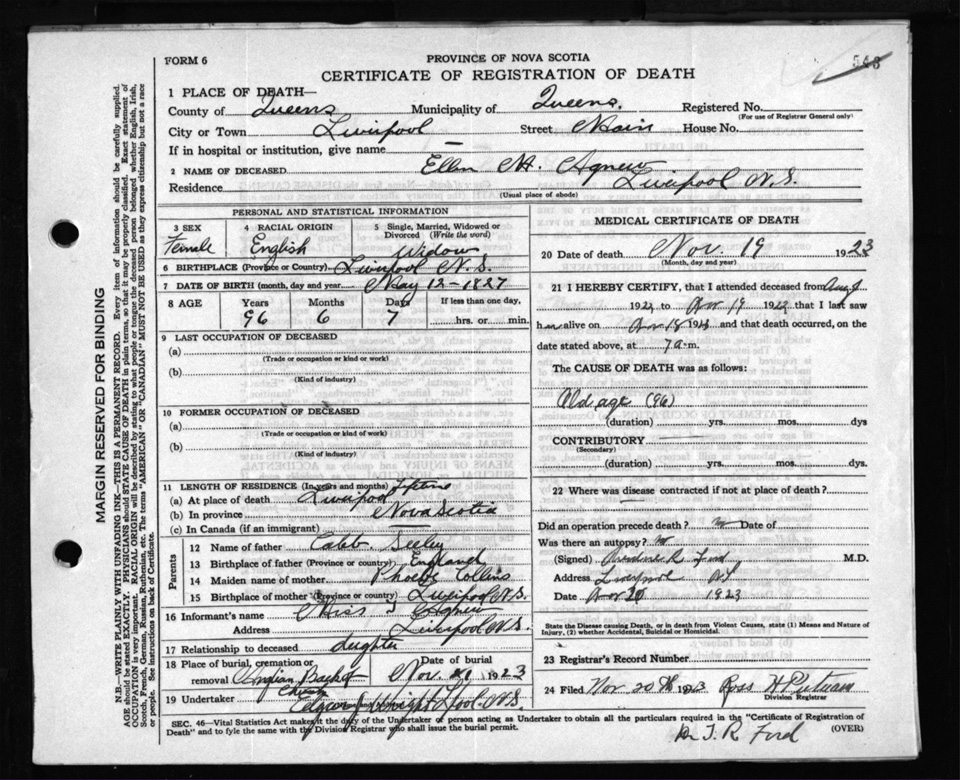 FORM 6
PROVINCE OF NOVA SCOTIA
543
CERTIFICATE OF REGISTRATION OF DEATH
1 PLACE OF DEATH—
County of Queens Municipality of Queens. Registered No.
(For use of Registrar General only)
City or Town Liverpool Street Main House No.
If in hospital or institution, give name —
2 NAME OF DECEASED Ellen H. Agnew
Residence Liverpool N.S.
(Usual place of abode)
PERSONAL AND STATISTICAL INFORMATION
3 SEX 4 RACIAL ORIGIN 5 Single, Married, Widowed or
Divorced (Write the word)
Female English Widow
6 BIRTHPLACE (Province or Country) Liverpool N.S.
7 DATE OF BIRTH (month, day and year) May 12-1827
8 AGE Years Months Days If less than one day,
96 6 7 hrs. or min.
9 LAST OCCUPATION OF DECEASED
(a)
(Trade or occupation or kind or work)
(b)
(Kind of industry)
10 FORMER OCCUPATION OF DECEASED
(a)
(Trade or occupation or kind of work)
(b)
(Kind of industry)
11 LENGTH OF RESIDENCE (In years and months) Lifetime
(a) At place of death Liverpool
(b) In province Nova Scotia
(c) In Canada (if an immigrant)
Parents
12 Name of father Caleb Seeley
13 Birthplace of father (Province or country) England
14 Maiden name of mother Phoebe Collins
15 Birthplace of mother (Province or country) Liverpool N.S.
16 Informant's name Miss J Agnew
Address Liverpool N.S.
17 Relationship to deceased daughter
18 Place of burial, cremation or Date of burial
removal Nov. 1923
Church
19 Undertaker Knight Lpool. N.S.
MEDICAL CERTIFICATE OF DEATH
20 Date of death Nov. 19 1923
(Month, day and year)
21 I HEREBY CERTIFY, that I attended deceased from
192 to Nov 19 192 that I last saw
h alive on Nov 18 1923 and that death occurred, on
the date stated above, at 7 a m.
The CAUSE OF DEATH was as follows:
Old age (96)
(duration) yrs. mos. dys
CONTRIBUTORY
(Secondary)
(duration) yrs. mos. dys.
22 Where was disease contracted if not at place of death?
Did an operation precede death? no Date of
Was there an autopsy? no
(Signed) Ford M.D.
Address Liverpool NS
Date Nov 20 1923
State the Disease causing Death, or in death from Violent Causes, state (1) Means and Nature of
Injury, (2) whether Accidental, Suicidal or Homicidal.
23 Registrar's Record Number
24 Filed Nov 20th 1923 Ross H Putnam
Division Registrar
SEC. 46—Vital Statistics Act makes it the duty of the Undertaker or person acting as Undertaker to obtain all the particulars required in the "Certificate of Registration of
Death" and to fyle the same with the Division Registrar who shall issue the burial permit.
(OVER)
Dr J. R. Ford
MARGIN RESERVED FOR BINDING
N.B.—WRITE PLAINLY WITH UNFADING INK—THIS IS A PERMANENT RECORD. Every item of information should be carefully supplied.
AGE should be stated EXACTLY. PHYSICIANS should STATE CAUSE OF DEATH in plain terms, so that it may be properly classified. Exact statement of
OCCUPATION is very important. RACIAL ORIGIN will be described by stating to what people or tongue the deceased person belonged whether English, Irish,
Scotch, French, German, Russian, Ruthenian, etc. The terms "AMERICAN" or "CANADIAN" MUST NOT BE USED as they express citizenship but not a race
or people. See instructions on back of Certificate.